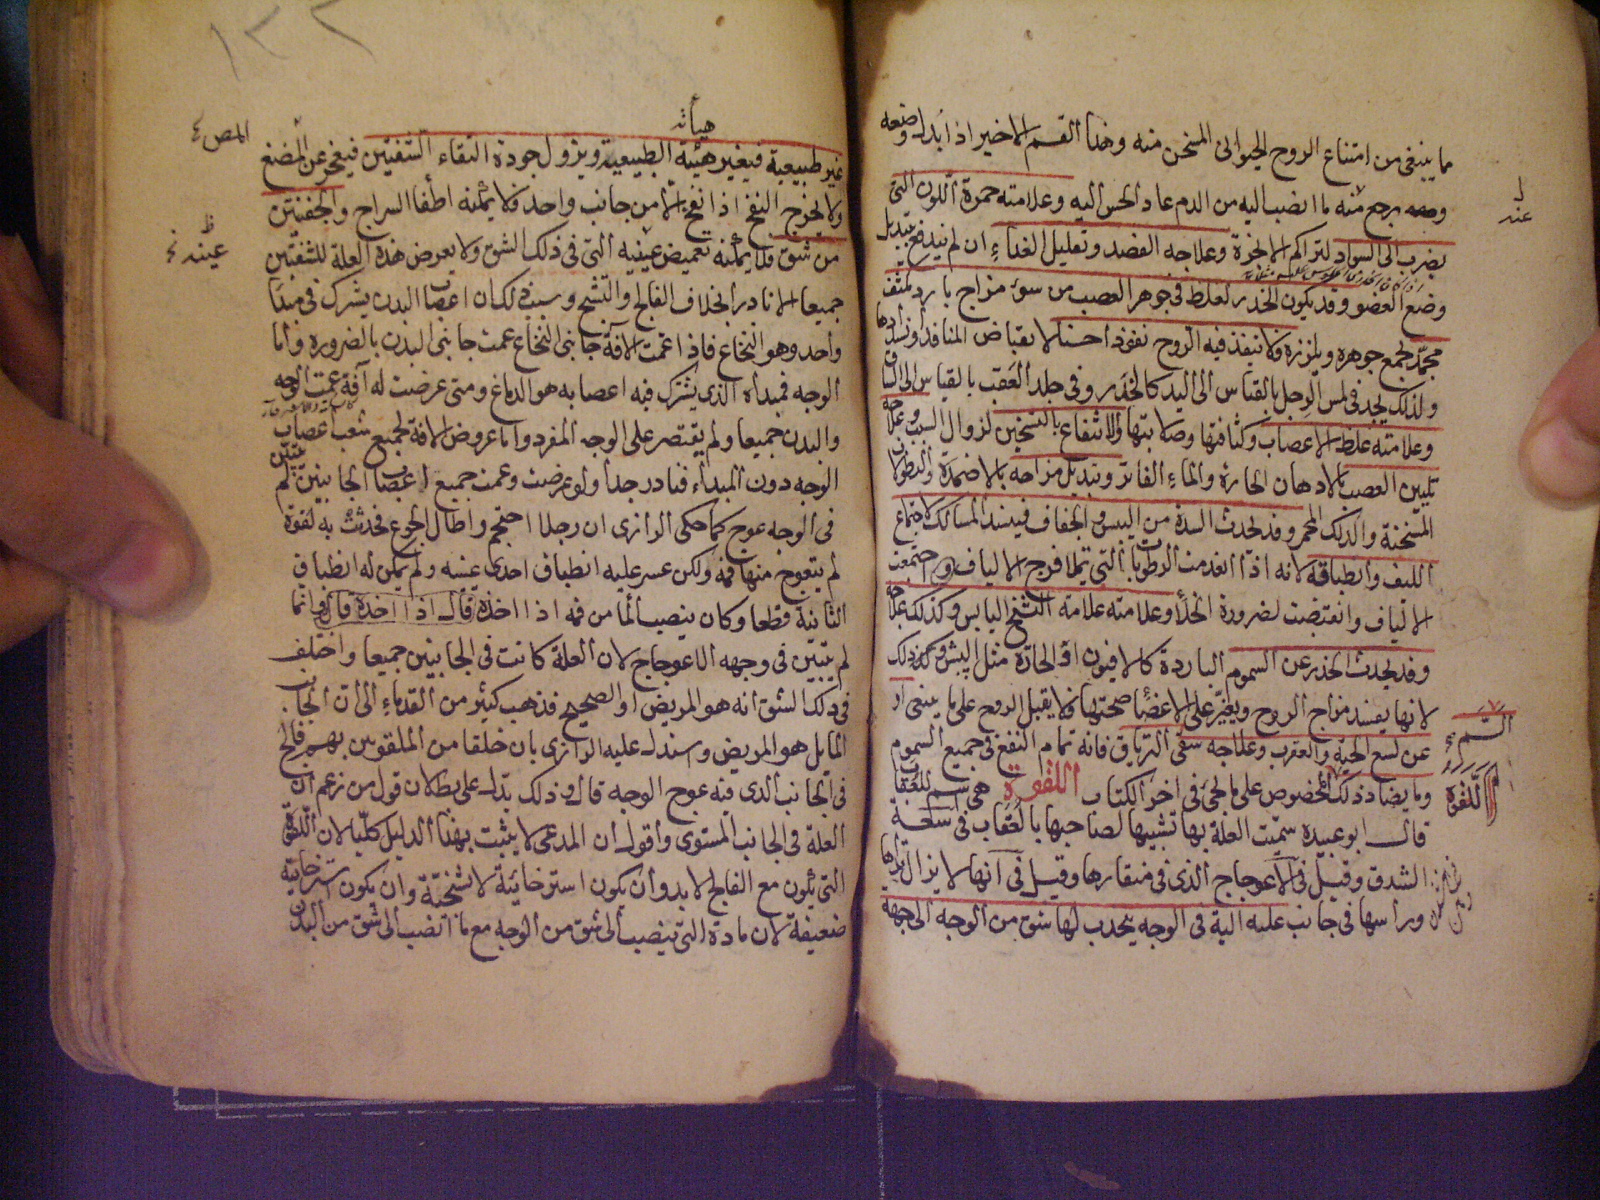 ما ينبغى من امتناع الروح الحيوانى المسخن منه وهذا القسم الاخير اذا ابدل وضعه
رجع منه ما انضب اليه من الدم عاد الحس اليه وعلامته حمرة اللون التى
عنه
يضرب الى السواد لتراكم الحمرة وعلاجه الفصد وتقليل الغذاء ان لم يندفع بتبديل
وضع العضو وقد يكون الخدر لغلظ فى جوهر العصب من سوء مزاج بارد يكثف
مجمد يجمع جوهره ويلززه فلا ينفذ فيه الروح نفوذا حسنا لانقباض المنافذ وانسدادها
ولذلك يجد فى لمس الرجل بالقياس الى اليد كالخدر وفى جلد العقب بالقياس الى
وعلامته غلظ الاعصاب وكثافتها وصلابتها والانتفاع بالتسخين لزوال السبب وعلاجه
تليين العصب بالادهان الحارة والماء الفاتر وتبديل مزاجه بالاضمدة والنطولات
المسخنة والدلك المحمر وقد يحدث السدة من اليبس والجفاف فينسد المسالك لاجتماع
الليف وانطباقه لانه اذا انعدمت الرطوبات التى تملأ فرج الالياف اجتمعت
الالياف وانقبضت لضرورة الخلأ وعلامته علامة التشنج اليابس وكذلك علاجه
وقد يحدث الخدر عن السموم الباردة كالافيون او الحارة مثل البيش وذلك
لانها يفسد مزاج الروح ويغير على الاعضا صحتها فلا يقبل الروح على ما ينبغى او
السم
عن لسع الحية والعقرب وعلاجه سقى الترياق فانه تمام النفع فى جميع السموم
وما يضاد ذلك المخصوص على ما يجئ فى اخر الكتاب اللقوة هى اسم للعقاب
اللقوة
قال ابو عبيدة سميت العلة بها تشبيها لصاحبها بالعقاب فى سعة
الشدق وقيل فى الاعوجاج الذى فى منقارها وقيل فى انها لا يزال
وراسها فى جانب علة الية فى الوجه يجذب لها شق من الوجه الى جهة
١٣٢
هيأته
غير طبيعية فيغير هيئته الطبيعية ويزول جودة التقاء الشفتين فيعجز عن المضغ
ولا يخرج النفخ اذا نفخ الا من جانب واحد فلا يمكنه اطفا السراج والجفنين
من شق فلا يمكنه تغميض عينيه التى فى ذلك الشق ولا يعرض هذه العلة للشقين
عينه
جميعا الا نادرا بخلاف الفالج والتشنج وسببه لكان اعصاب البدن يشترك فى مبدا
واحد وهو النخاع فاذا عمت الافة جانبى النخاع عمت جانبى البدن بالضرورة واما
الوجه فمبداه الذى يشترك فيه اعصابه هو الدماغ ومتى عرضت له آفة عمت الوجه
والبدن جميعا ولم يقتصر على الوجه المفرد واما عروض الافة لجميع شعب اعصاب
الوجه دون المبداء فنادر جدا ولو عرضت وعمت جميع اعصاب الجانبين لم يتبين
فى الوجه عوج كما حكى الرازى ان رجلا احتجم واطال الجوع فحدث به لقوة
لم يتعوج منها فمه ولكن عسر عليه انطباق احدى عينيه ولم يمكن له انطباق
الثانية قطعا وكان ينصب الما من فمه اذا اخذه قال انما
لم يتبين فى وجهه الاعوجاج لان العلة كانت فى الجانبين جميعا واختلف
فى ذلك الشق انه هو المريض او الصحيح فذهب كثير من القدماء الى ان الجانب
المايل هو المريض واستدل عليه الرازى بان خلقا من الملقوين بهم فالج
فى الجانب الذى فيه عوج الوجه قال وذلك يدل على بطلان قول من زعم ان
العلة فى الجانب المستوى واقول ان المدعى لا يثبت بهذا الدليل كليا لان اللقوة
التى تكون مع الفالج لا بد وان يكون استرخائية لا تشنجية وان يكون استرخائية
ضعيفة لان مادة التى ينصب الى شق من الوجه مع ما انصب الى شق من البدن